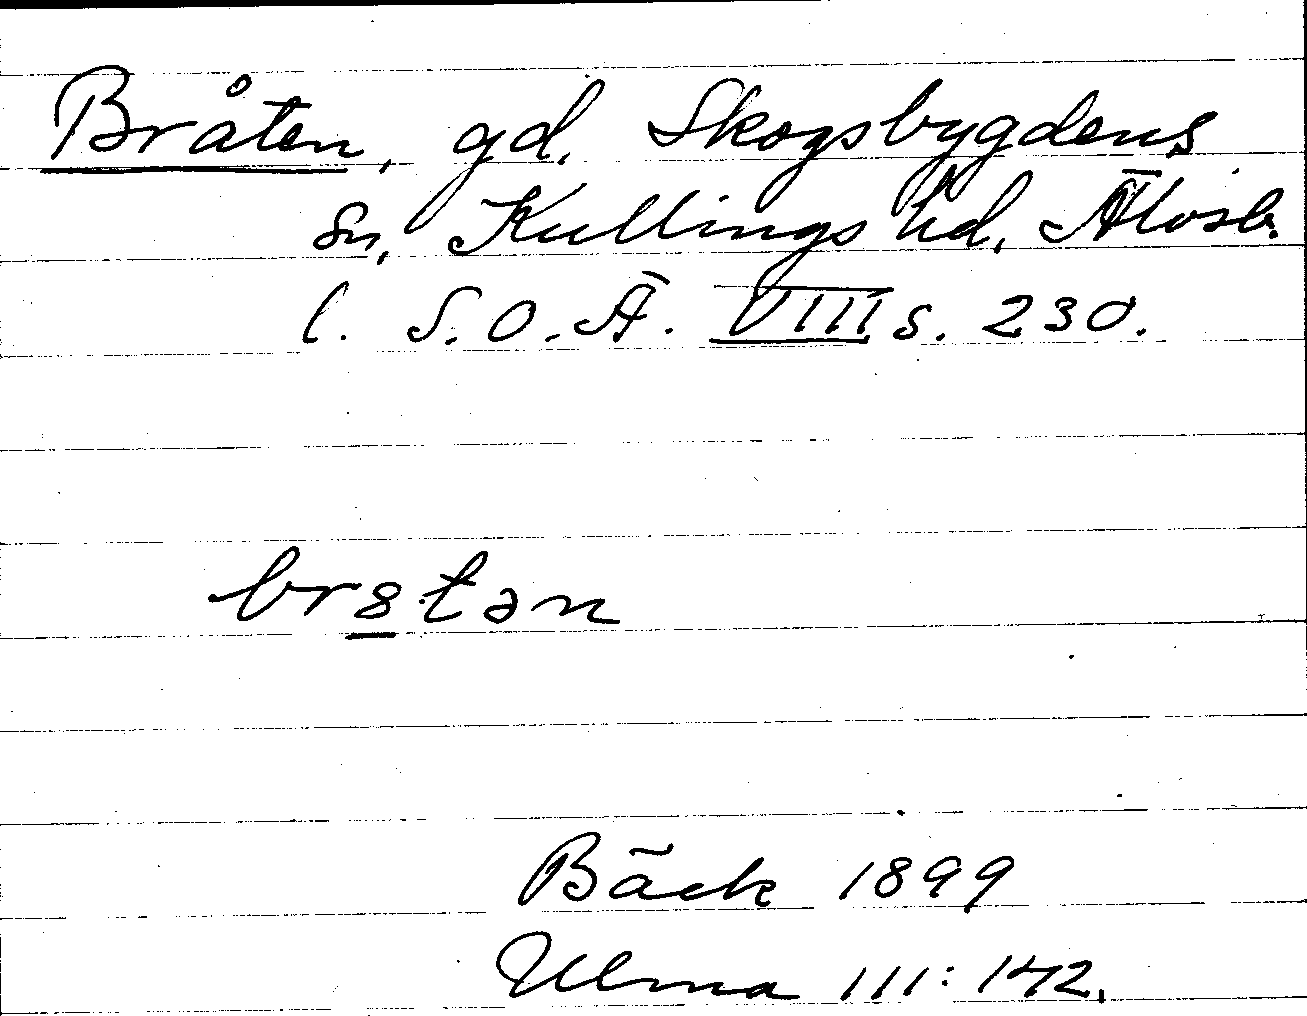 Bråten, gd. Skogsbygdens
sn, Kullings hd, Älvsb.
l. S.O.Ä. VIII s. 230.
br8tən
Bäck 1899
Ulma 111:142.